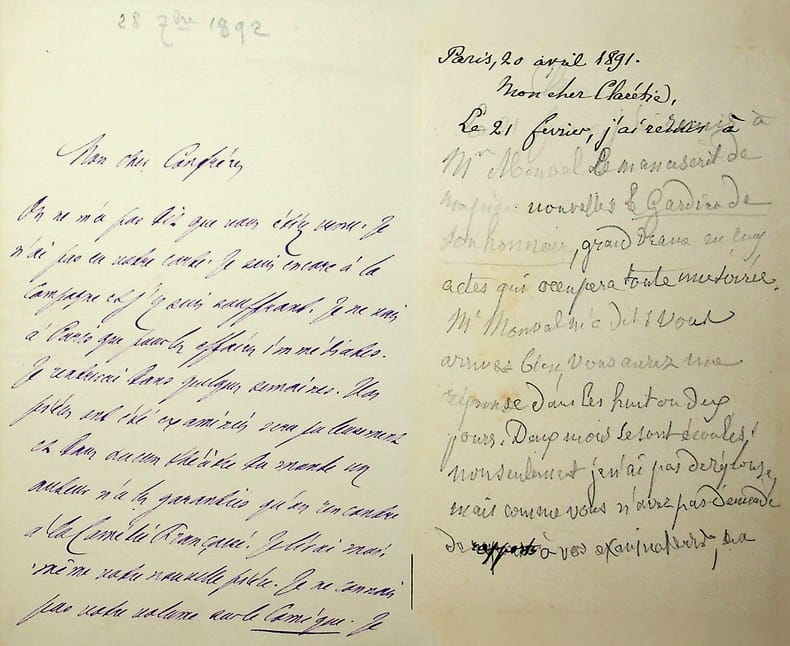 28 7bre 1892
Mon cher Confrère,
On ne m'a pas dit que vous étiez venu. Je
n'ai pas eu votre carte. Je suis encore à la
Campagne et j'y suis souffrant. Je ne vais
à Paris que pour les affaires immédiates.
Je rentrerai dans quelques semaines. Vos
pièces ont été examinées
et dans aucun théâtre du monde un
auteur n'a les garanties qu'on rencontre
à la Comédie Française. Je lirai moi-
même votre nouvelle pièce. Je ne connais
pas votre volume sur le Comique. Je
Paris, 20 avril 1891.
Mon cher Clarétie,
Le 21 fevrier, j'ai remis à
Mr Monval le manuscrit de
nouvelles le Gardien de
son honneur, grand drame en cinq
actes qui occupera toute une soirée.
Mr Monval m'a dit : Vous
arrivez bien, vous aurez une
réponse dans les huit ou dix
jours. Deux mois se sont écoulés ;
non seulement je n'ai pas de réponse,
mais comme vous n'avez pas demandé
de rapports à vos examinateurs,